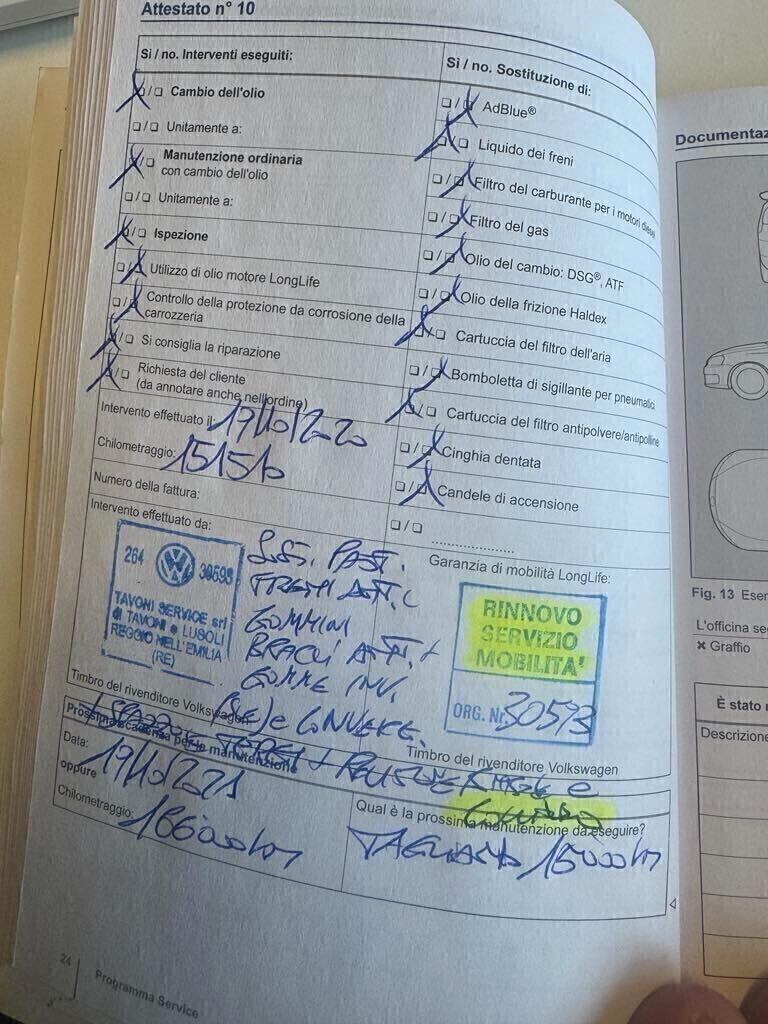 Attestato n° 10
Sì / no. Interventi eseguiti:
Cambio dell'olio
Unitamente a:
Manutenzione ordinaria
con cambio dell'olio
Unitamente a:
Ispezione
Utilizzo di olio motore LongLife
Controllo della protezione da corrosione della
carrozzeria
Si consiglia la riparazione
Richiesta del cliente
(da annotare anche nell'ordine)
Intervento effettuato il: 19/10/2020
Chilometraggio: 151510
Numero della fattura:
Intervento effettuato da:
264 30593
TAVONI SERVICE srl
di TAVONI e LUSOLI
REGGIO NELL'EMILIA
(RE)
SOS. PAST.
ATT.
GOMMINI
BRACCI ATT. +
GOMME INV.
Timbro del rivenditore Volkswagen
Sì / no. Sostituzione di:
AdBlue®
Liquido dei freni
Filtro del carburante per i motori diesel
Filtro del gas
Olio del cambio: DSG®, ATF
Olio della frizione Haldex
Cartuccia del filtro dell'aria
Bomboletta di sigillante per pneumatici
Cartuccia del filtro antipolvere/antipolline
Cinghia dentata
Candele di accensione
....................
Garanzia di mobilità LongLife:
RINNOVO
SERVIZIO
MOBILITA'
ORG. Nr. 30593
Timbro del rivenditore Volkswagen
Prossima scadenza per la manutenzione
Data: 19/10/2021
oppure
Chilometraggio: 166000 km
Qual è la prossima manutenzione da eseguire?
TAGLIANDO 15000 km
24
Programma Service
Documentaz
Fig. 13 Esem
L'officina se
× Graffio
È stato r
Descrizione